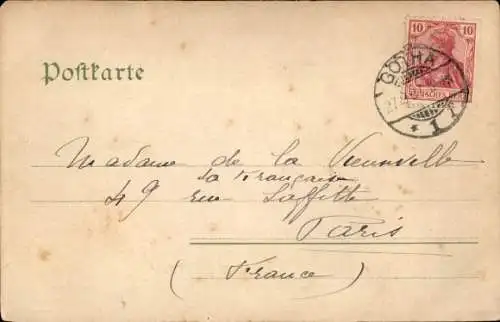 Postkarte
10 10
GOTHA
27.
* 1
Madame de la Vieuville
La Française
49 rue Laffitte
Paris
(France)